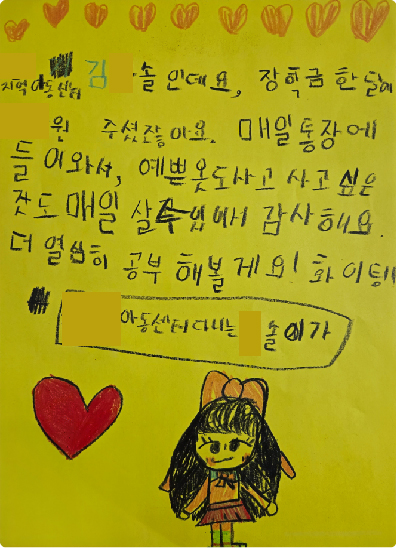 지역아동센터 김 솔인데요, 장학금 한달에
원 주셨잖아요. 매일통장에
들어와서, 예쁜옷도사고 사고싶은
것도 매일 살수있어서 감사해요.
더 열심히 공부 해볼게요! 화이팅!!
아동센터다니는 솔이가